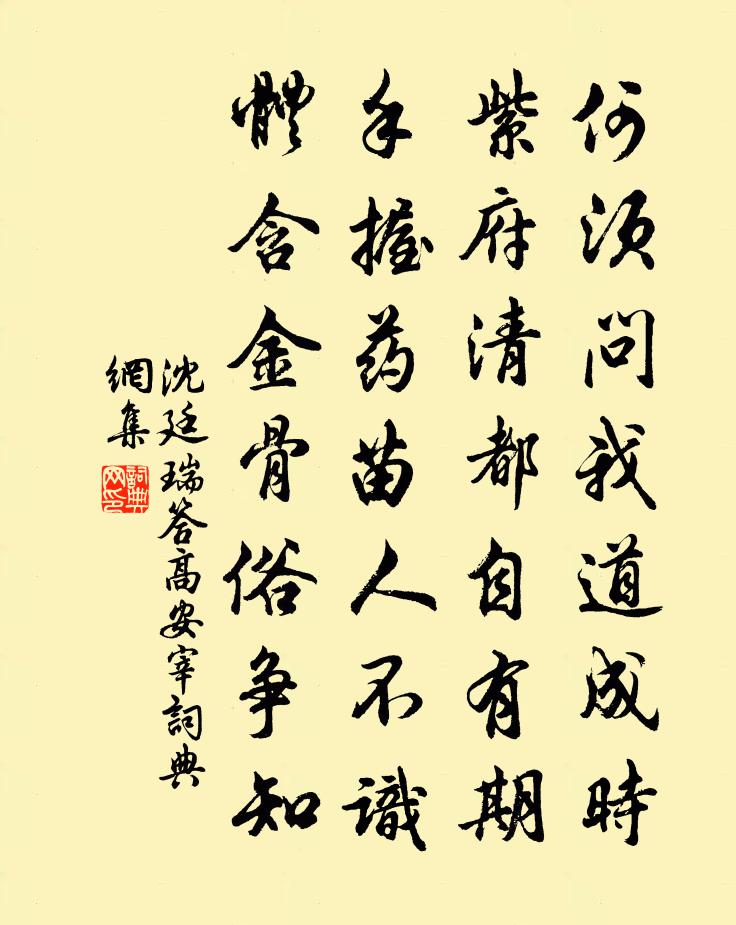 何须問我道成時
紫府清都自有期
手握药苗人不識
體含金骨俗争知
沈廷瑞答高安宰詞典
網集
詞典
网印